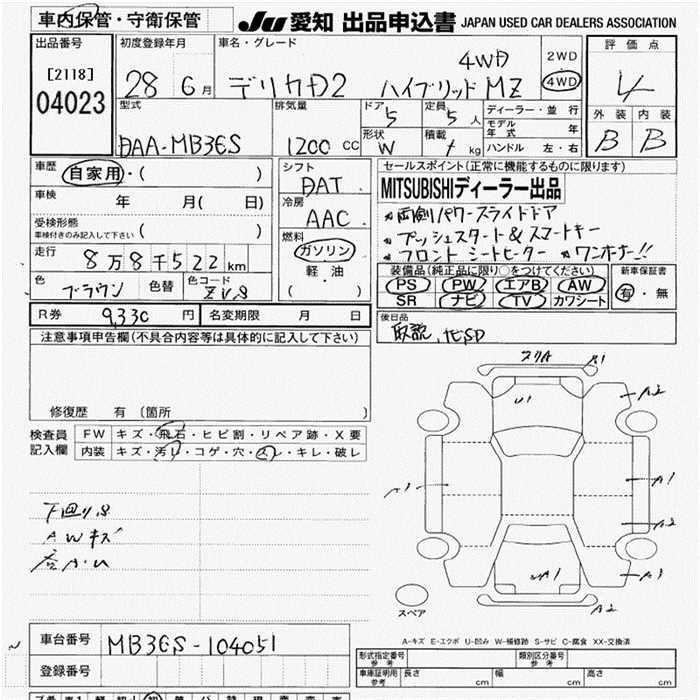 車内保管・守衛保管
JU 愛知 出品申込書 JAPAN USED CAR DEALERS ASSOCIATION
出品番号
[2118]
04023
初度登録年月
28 6月
車名・グレード
デリカD2 ハイブリッド MZ
4WD
2WD
4WD
評価点
4
外装 内装
B B
型式
DAA-MB36S
排気量
1200 CC
ドア
5
定員
5人
形状
W
積載
kg
ディーラー・並行
モデル年式 年
ハンドル 左・右
車歴
自家用・( )
車検 年 月( 日)
受検形態
車検付きのみ記入して下さい ( )
走行
8万8千522km
色
ブラウン
色替
色コード
ZV8
シフト
DAT
冷房
AAC
燃料
ガソリン
軽・油
( )
セールスポイント(正常に機能するものに限ります)
MITSUBISHIディーラー出品
両側パワースライドドア
プッシュスタート&スマートキー
フロントシートヒーター ワンオーナー!!
装備品(純正品に限り○をつけてください)
PS PW エアB AW
SR ナビ TV カワシート
新車保証書
有・無
R券 9,330円
名変期限 月 日
後日品
取説,
注意事項申告欄(不具合内容等は具体的に記入して下さい)
修復歴 有 〔箇所 〕
検査員
記入欄
FW キズ・飛石・ヒビ割・リペア跡・X要
内装 キズ・汚レ・コゲ・穴・スレ・キレ・破レ
下回りS
AWキズ
A1
U1
A2
A1
A1
A2
A2
スペア
A-キズ E-エクボ U-凹み W-補修跡 S-サビ C-腐食 XX-交換済
車台番号
MB36S-104051
登録番号
形式指定番号
参考
類別区分番号
参考
車庫証明用
参考
長さ cm 幅 cm 高さ cm